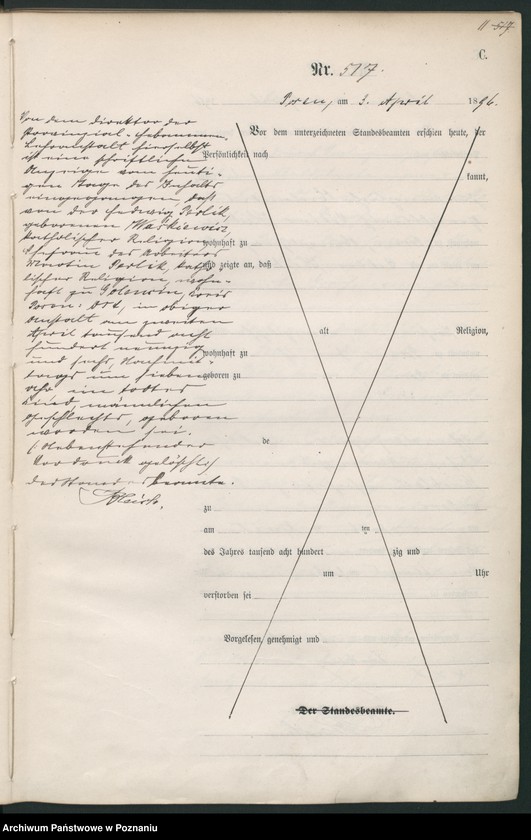 11 517
C.
Nr. 517.
Posen, am 3. April 1896.
Von dem Direktor der
Provinzial-Hebammen-
Lehranstalt hierselbst
ist eine schriftliche
Anzeige vom heuti-
gen Tage des Inhalts
eingegangen, daß
von der Hedwig
geborenen
katholischer Religion,
Ehefrau des Arbeiters
Martin katho-
lischer Religion, wohn-
haft zu Kreis
Posen Ost, in obiger
Anstalt am zweiten
April tausend acht
hundert neunzig
und sechs, Nachmit-
tags um sieben
Uhr ein todtes
Kind, männlichen
Geschlechts, geboren
worden sei.
(Nebenstehender
Vordruck gelöscht)
der Standesbeamte.
Vor dem unterzeichneten Standesbeamten erschien heute, der
Persönlichkeit nach
kannt,
wohnhaft zu
und zeigte an, daß
alt Religion,
wohnhaft zu
geboren zu
de
zu
am ten
des Jahres tausend acht hundert zig und
um Uhr
verstorben sei
Vorgelesen, genehmigt und
Der Standesbeamte.
Archiwum Państwowe w Poznaniu